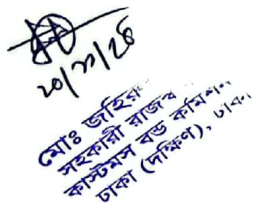 ২০/১১/২৪
মোঃ জহির
সহকারী রাজস্ব
কাস্টমস বন্ড কমিশন
ঢাকা (দক্ষিণ), ঢাকা